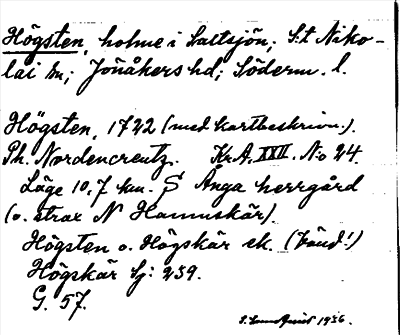 Högsten, holme i Saltsjön; S:t Niko-
lai sn; Jönåkers hd; Söderm. l.
Högsten, 1722 (med kartbeskrivn.).
Ph. Nordencreutz. Kr.A. XXII. N:o 24.
Läge 10,7 km. S Ånga herrgård
(o. strax N Hamnskär).
Högsten o. Högskär ek. (Tänd!)
Högskär bj: 259.
G. 57.
S. Lundquist 1936.